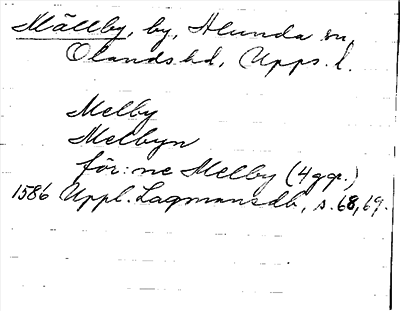 Mällby, by, Alunda sn,
Olands hd, Upps. l.
Melby
Melbyn
för:ne Melby (4 ggr.)
1586 Uppl. Lagmansdb, s. 68, 69.